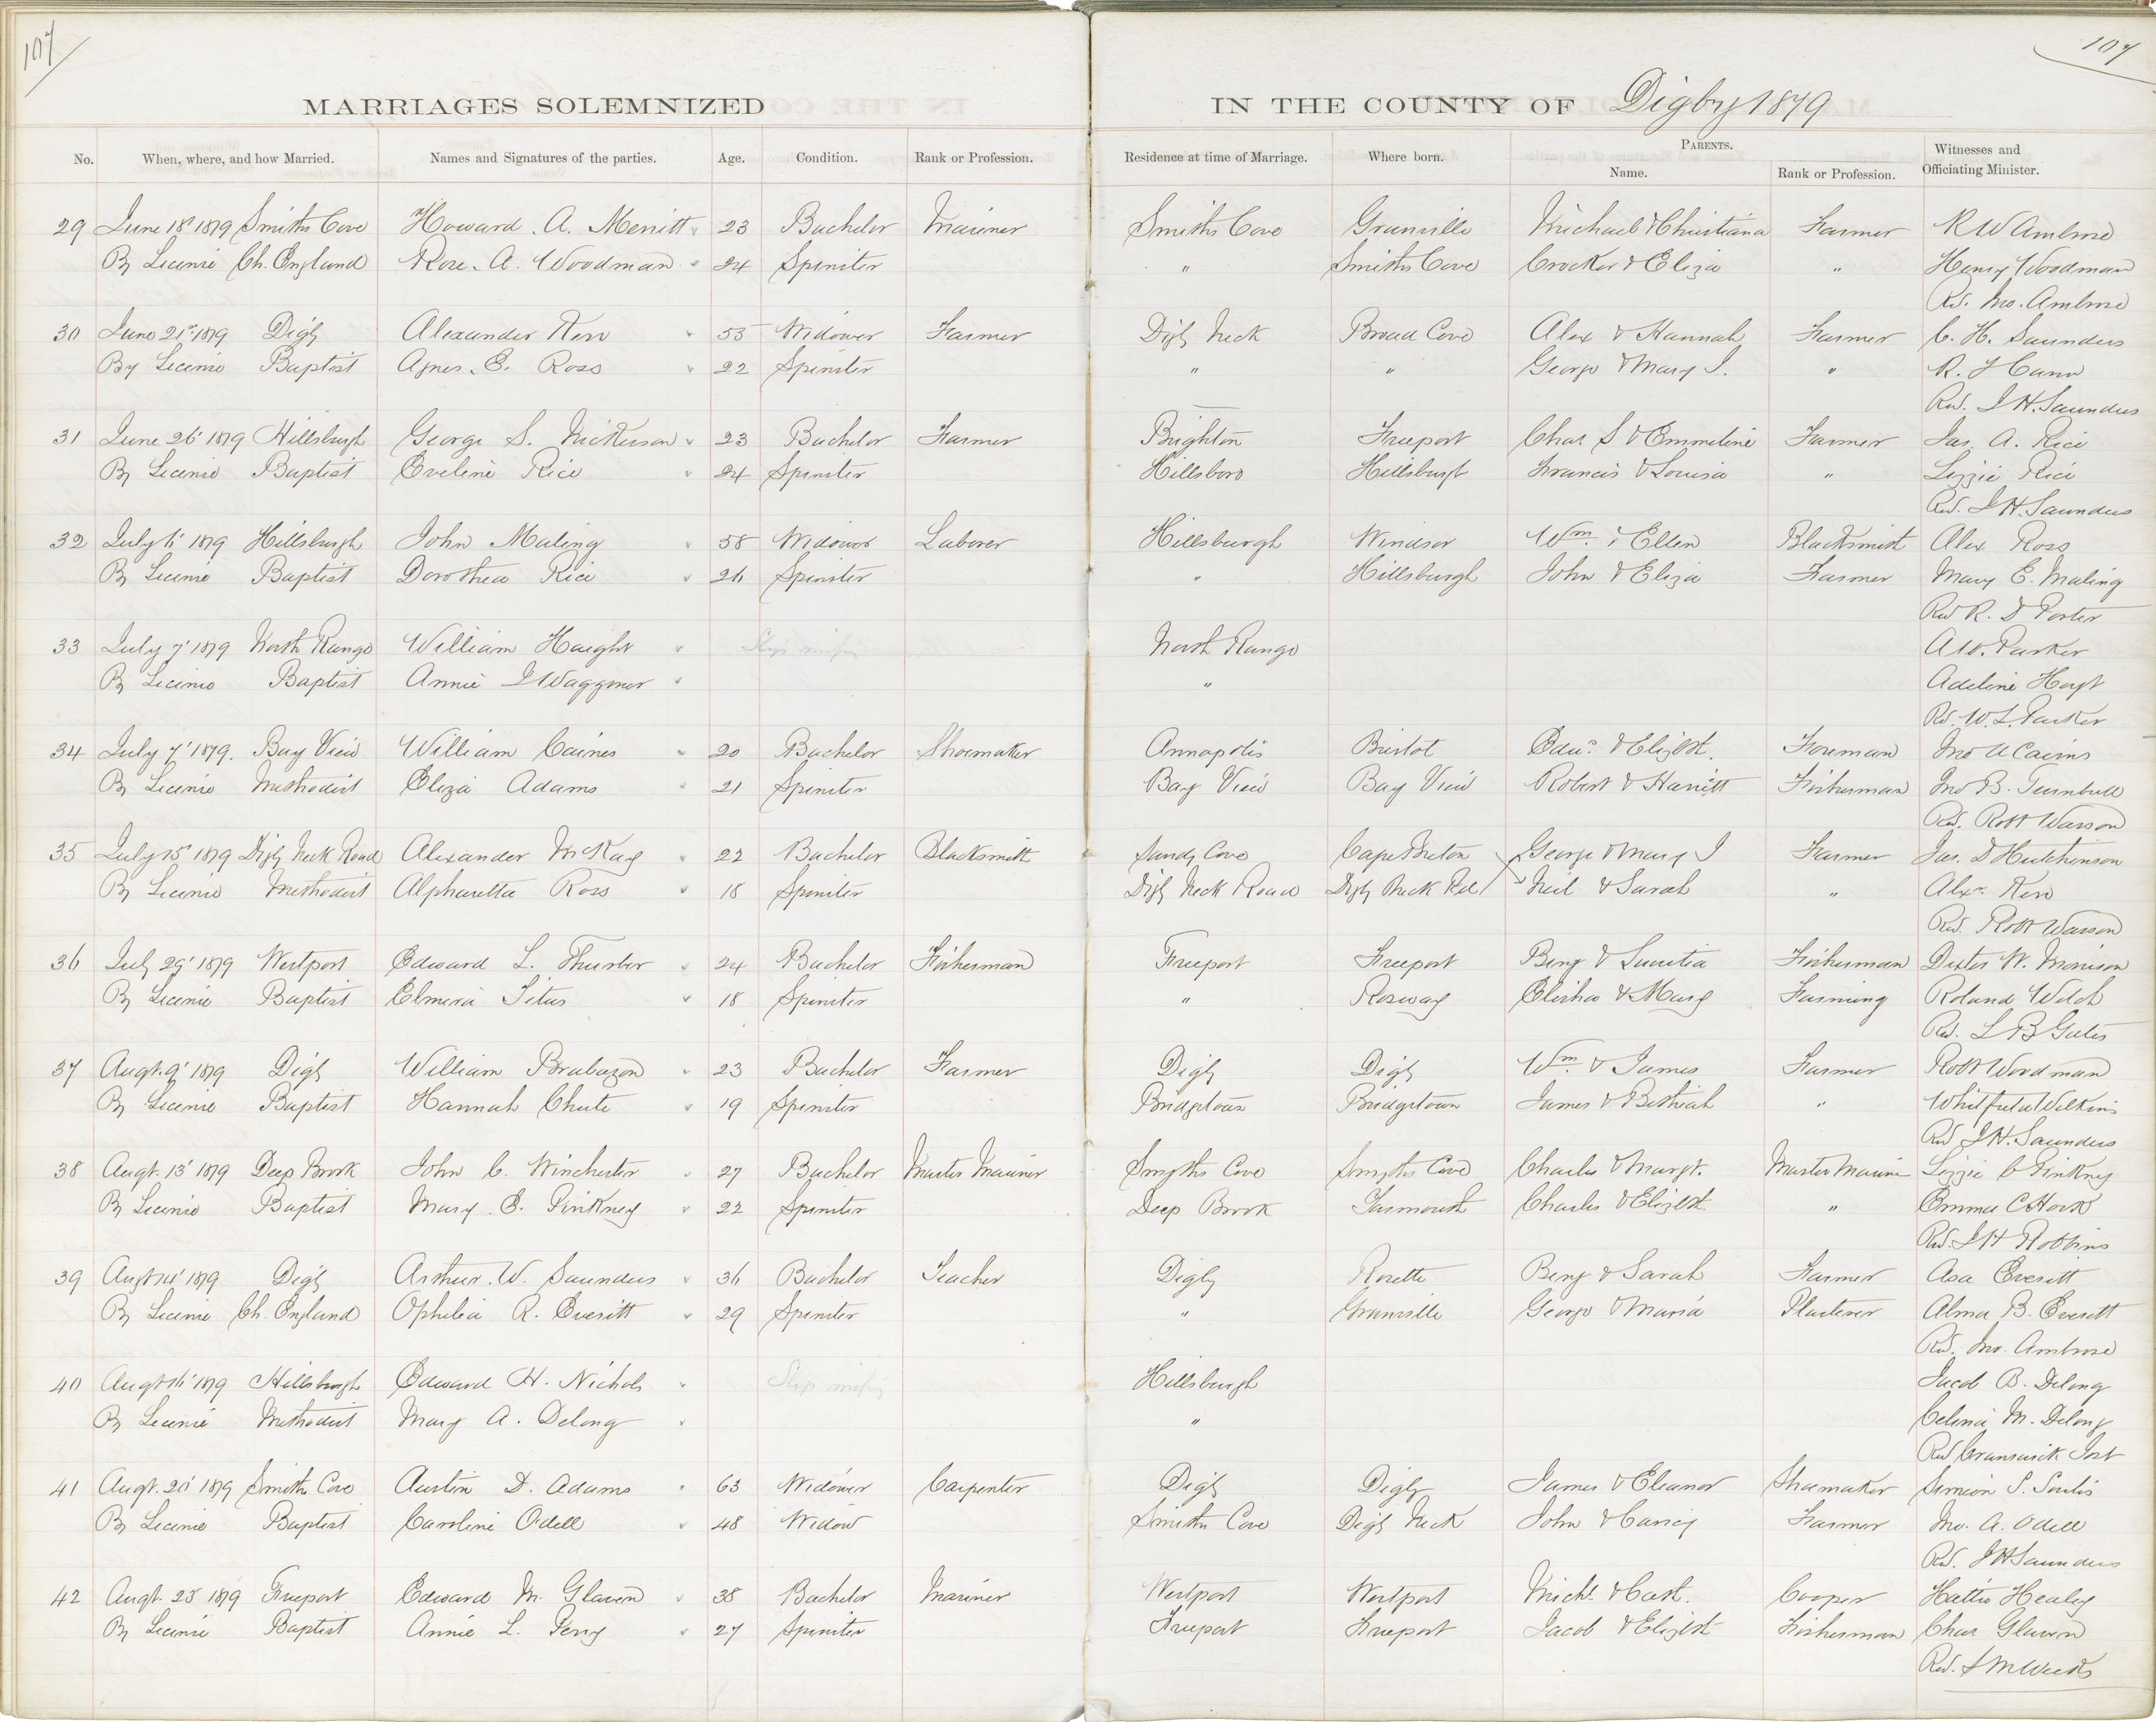 107 107
MARRIAGES SOLEMNIZED IN THE COUNTY OF Digby 1879
No. When, where, and how Married. Names and Signatures of the parties. Age. Condition. Rank or Profession. Residence at time of Marriage. Where born. PARENTS. Name. Rank or Profession. Witnesses and Officiating Minister.
29 June 18' 1879 Smiths Cove Howard. A. Merritt 23 Bachelor Mariner Smiths Cove Granville Michael & Christiana Farmer R W Ambrose
By License Ch. England Rose. A. Woodman 24 Spinster " Smiths Cove Crocker & Eliza " Henry Woodman
Rev. Jno. Ambrose
30 June 21st 1879 Digby Alexander Kerr 53 Widower Farmer Digby Neck Broad Cove Alex & Hannah Farmer C. H. Saunders
By License Baptist Agnes. E. Ross 22 Spinster " " George & Mary J. " R. J Cann
Rev. J H. Saunders
31 June 26' 1879 Hillsburgh George S. Nickerson 23 Bachelor Farmer Brighton Freeport Chas S & Emmeline Farmer Jas. A. Rice
By License Baptist Eveline Rice 24 Spinster Hillsboro Hillsburgh Francis & Louisa " Lizzie Rice
Rev. J H. Saunders
32 July 6' 1879 Hillsburgh John Maling 58 Widower Laborer Hillsburgh Windsor Wm. & Ellen Blacksmith Alex Ross
By License Baptist Dorothea Rice 26 Spinster " Hillsburgh John & Eliza Farmer Mary E. Maling
Rev R. D Porter
33 July 7' 1879 North Range William Haight North Range A W. Parker
By License Baptist Annie J Waggoner " Adeline Hoyt
Rev. W. L. Parker
34 July 7' 1879. Bay View William Caines 20 Bachelor Shoemaker Annapolis Bristol Edwd. & Elizbt. Foreman Jno A Cairns
By License Methodist Eliza Adams 21 Spinster Bay View Bay View Robert & Harriett Fisherman Jno B. Turnbull
Rev. Robt Wasson
35 July 15' 1879 Digby Neck Road Alexander McKay 22 Bachelor Blacksmith Sandy Cove Cape Breton George & Mary J Farmer Jas. D Hutchinson
By License Methodist Alpharetta Ross 18 Spinster Digby Neck Road Digby Neck Rd Neil & Sarah " Alexr. Kerr
Rev. Robt Wasson
36 July 29' 1879 Westport Edward L. Thurber 24 Bachelor Fisherman Freeport Freeport Benj & Lucretia Fisherman Dexter W. Morrison
By License Baptist Elmira Titus 18 Spinster " Rosway Elisha & Mary Farming Roland Welch
Rev. L B Gates
37 Augt. 9' 1879 Digby William Brabazon 23 Bachelor Farmer Digby Digby Wm. & James Farmer Robt Woodman
By License Baptist Hannah Chute 19 Spinster Bridgetown Bridgetown James & Bethiah " Whitfield Wilkins
Rev J H. Saunders
38 Augt. 13' 1879 Deep Brook John C. Winchester 27 Bachelor Master Mariner Smyths Cove Smyths Cove Charles & Margt. Master Marine Lizzie C Pinkney
By License Baptist Mary. E. Pinkney 22 Spinster Deep Brook Yarmouth Charles & Elizbt. " Emma C
Rev. J H Robbins
39 Augt 14' 1879 Digby Arthur. W. Saunders 36 Bachelor Teacher Digby Rosette Benj & Sarah Farmer Asa Everitt
By License Ch. England Ophelia R. Everitt 29 Spinster " Granville George & Maria Plasterer Alma B. Everitt
Rev. Jno. Ambrose
40 Augt 16' 1879 Hillsburgh Edward H. Nichols Hillsburgh Jacob B. Delong
By License Methodist Mary A. Delong " Celina M. Delong
Rev Cranswick Jost
41 Augt. 20' 1879 Smiths Cove Austin D. Adams 63 Widower Carpenter Digby Digby James & Eleanor Shoemaker Simeon S. Soulis
By License Baptist Caroline Odell 48 Widow Smiths Cove Digby Neck John & Farmer Jno. A. Odell
Rev. J H Saunders
42 Augt. 23 1879 Freeport Edward M. Glavin 38 Bachelor Mariner Westport Westport Michl. & Cath. Cooper Hattie Healey
By License Baptist Annie L. Perry 27 Spinster Freeport Freeport Jacob & Elizbt Fisherman Chas Glavin
Rev. J M Weeks